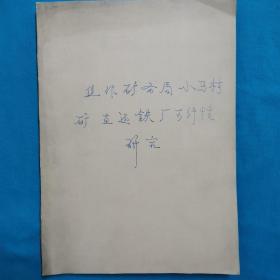 焦作矿务局小马村
矿直还铁厂可行性
研究